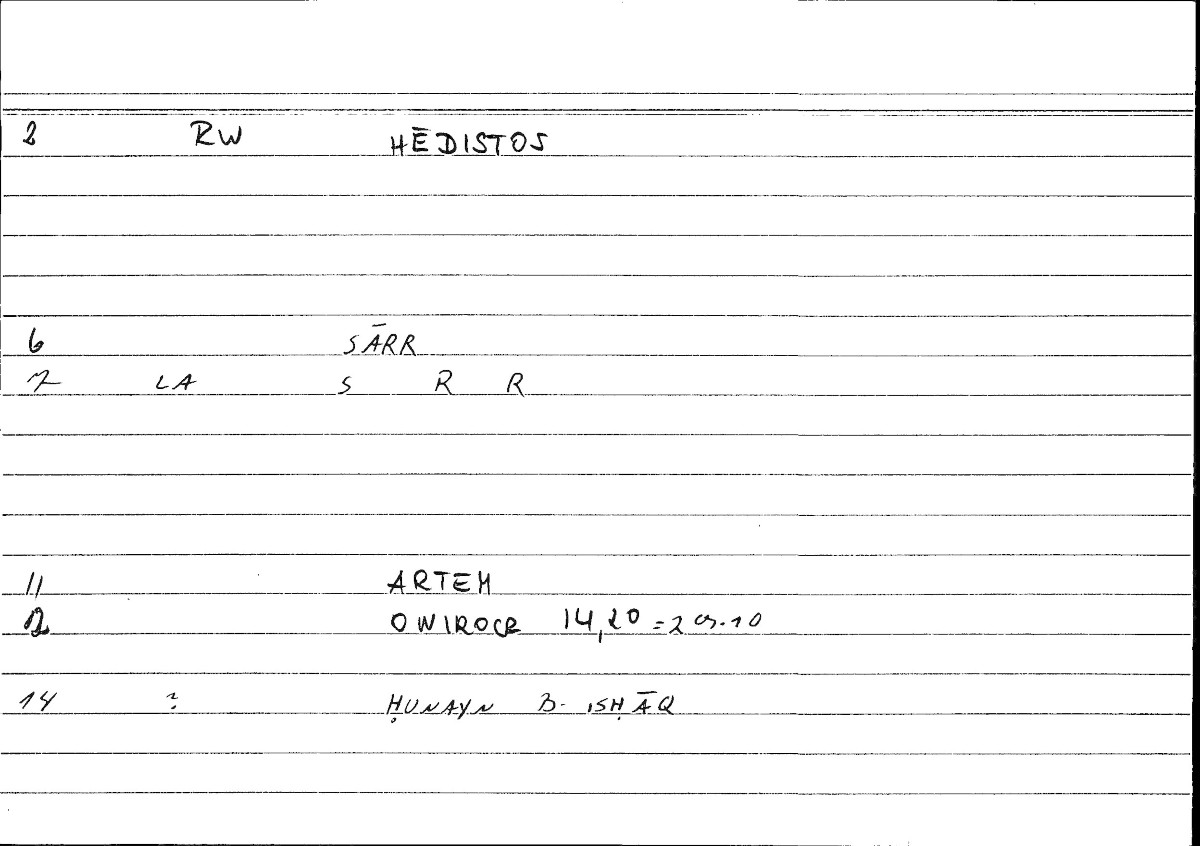 2 RW HĒDISTOS
6 SĀRR
7 LA S R R
11 ARTEM
12 ONIROCR 14,20 = 209.10
14 ? ḤUNAYN B. ISḤĀQ